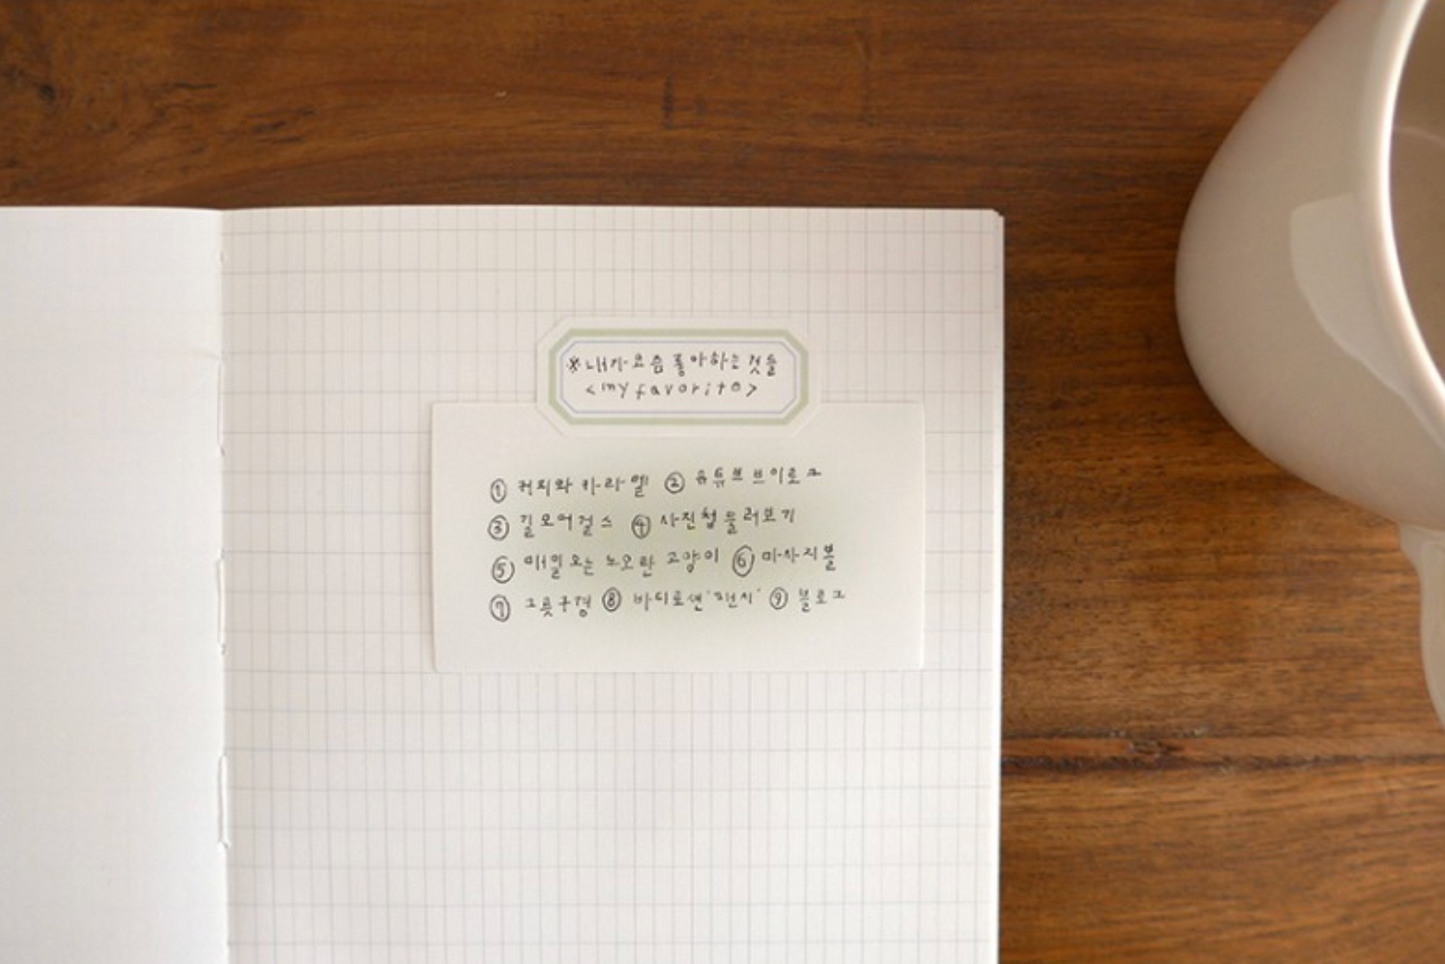 ※ 내가 요즘 좋아하는 것들
<my favorite>
① 커피와 카라멜 ② 유튜브 브이로그
③ 길모어걸스 ④ 사진첩 둘러보기
⑤ 매일 오는 노오란 고양이 ⑥ 마사지볼
⑦ 그릇구경 ⑧ 바디로션 ⑨ 블로그